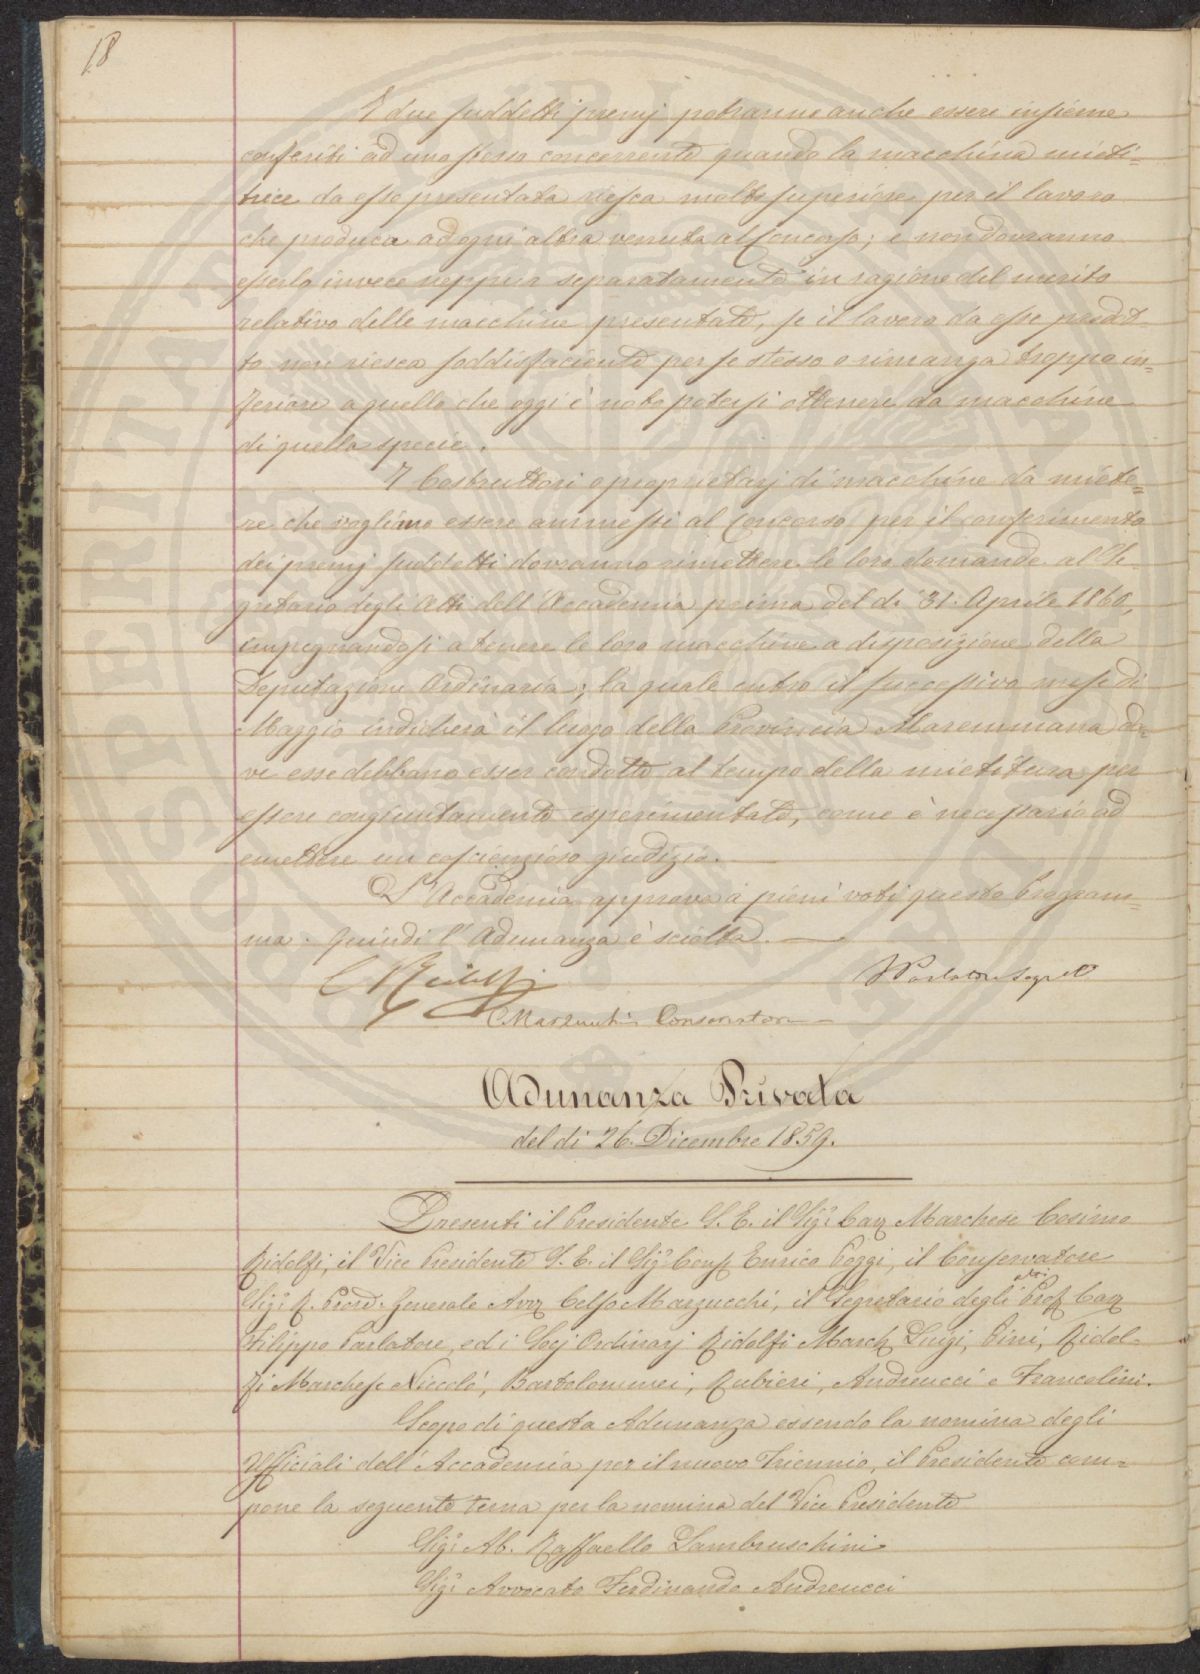 18
I due suddetti premj potranno anche essere insieme
conferiti ad uno stesso concorrente quando la macchina mieti-
trice da esso presentata riesca molto superiore per il lavoro
che produca ad ogni altra venuta al Concorso; e non dovranno
esserlo invece neppur separatamente in ragione del merito
relativo delle macchine presentate, se il lavoro da esse prodot-
to non riesca soddisfaciente per se stesso o rimanga troppo in-
feriore a quello che oggi è noto potersi ottenere da macchine
di quella specie.
I Costruttori o proprietarj di macchine da miete-
re che vogliano essere ammessi al Concorso per il conferimento
dei premj suddetti dovranno rimettere le loro domande al Se-
gretario degli Atti dell'Accademia prima del dì 31. Aprile 1860,
impegnandosi a tenere le loro macchine a disposizione della
Deputazione Ordinaria; la quale entro il successivo mese di
Maggio indicherà il luogo della Provincia Maremmana do-
ve esse debbano esser condotte al tempo della mietitura per
essere congiuntamente esperimentate, come è necessario ad
emettere un coscienzioso giudizio.
L'Accademia approva a pieni voti questo Program-
ma. Quindi l'Adunanza è sciolta.
C Ridolfi
Parlatore Segret
C Marzucchi Conservatore
Adunanza Privata
del dì 26. Dicembre 1859.
Presenti il Presidente S. E. il Sigr. Cav Marchese Cosimo
Ridolfi, il Vice Presidente S. E. il Sigr. Cons Enrico Poggi, il Conservatore
Sigr. R. Procr. Generale Avv Celso Marzucchi, il Segretario degli atti Prof Cav
Filippo Parlatore, ed i Socj Ordinarj Ridolfi March Luigi, Cini, Ridol-
fi Marchese Niccolò, Bartolommei, Rubieri, Andreucci e Francolini.
Scopo di questa Adunanza essendo la nomina degli
Ufficiali dell'Accademia per il nuovo Triennio, il Presidente com-
pone la seguente terna per la nomina del Vice Presidente
Sigr. Ab. Raffaello Lambruschini
Sigr. Avvocato Ferdinando Andreucci
PROSPERITATI PVBLICAE AVGENDAE